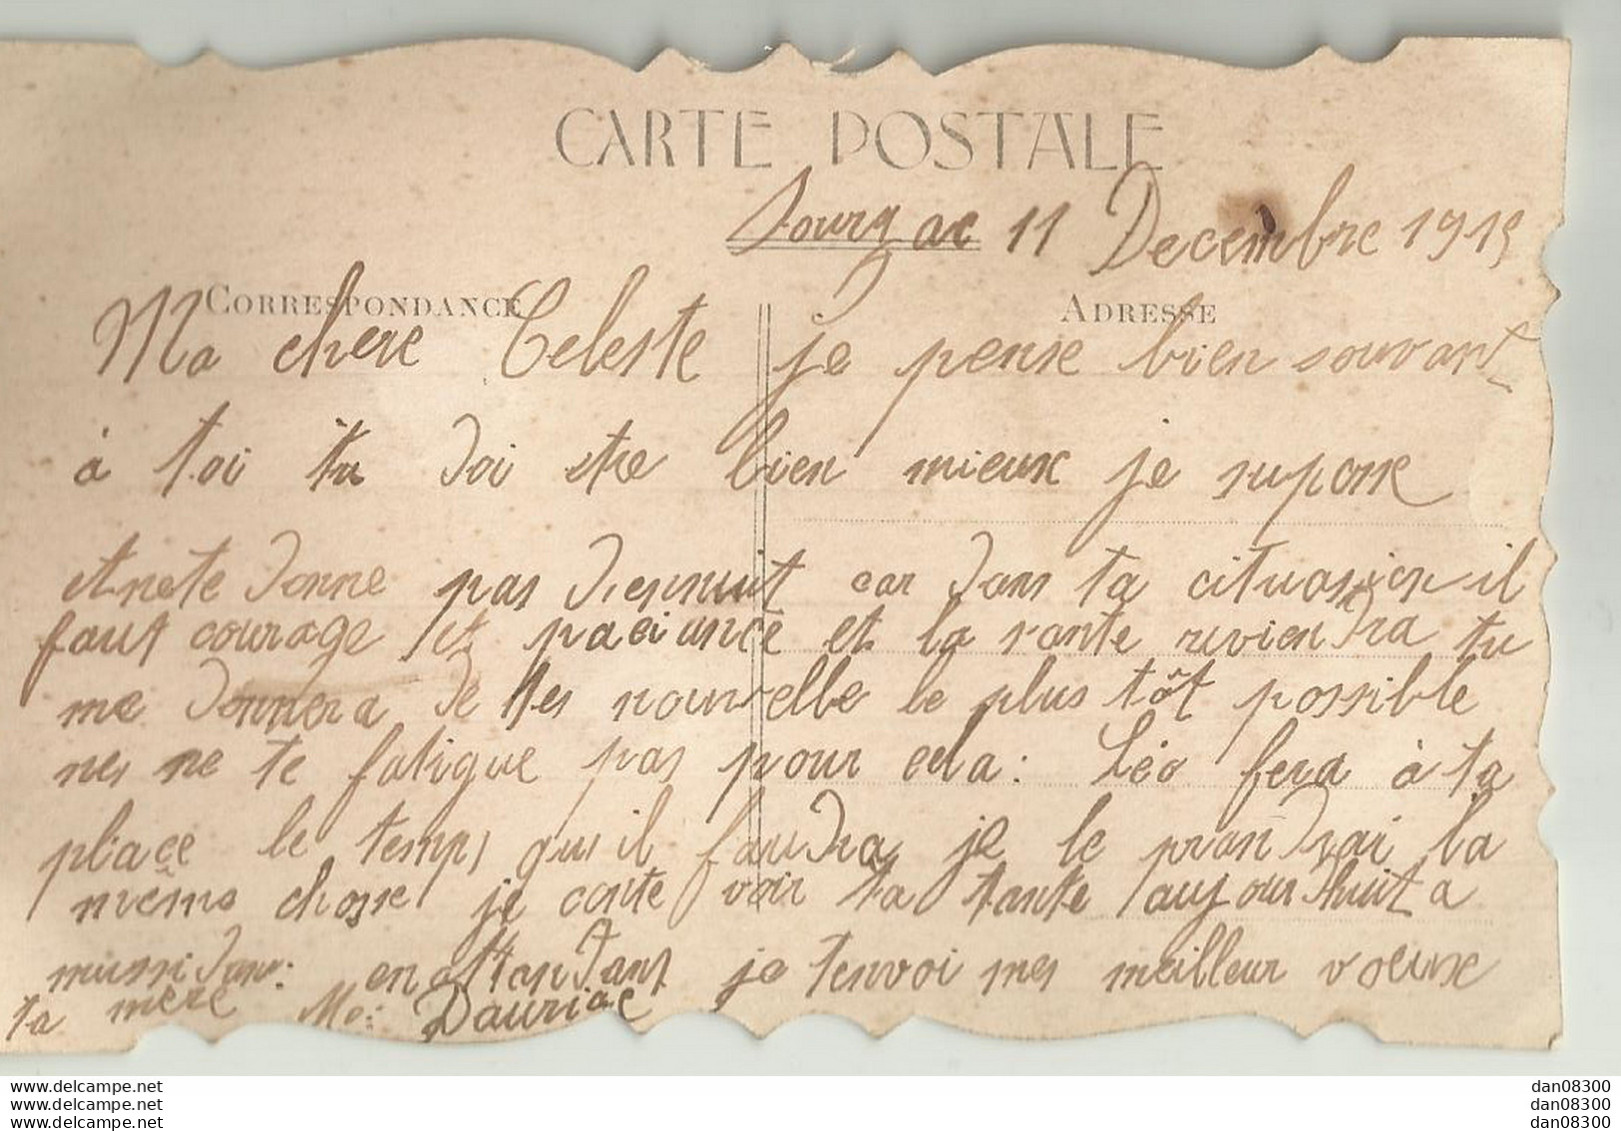 CARTE POSTALE
Sourzac 11 Decembre 1915
CORRESPONDANCE
ADRESSE
Ma chere Celeste je pense bien souvant
à toi tu doi etre bien mieux je suposse
et ne te donne pas d'ennuit car dans ta cituasion il
faut courage et paciance et la sante reviendra tu
me donnera de tes nouvelle le plus tôt possible
ne te fatigue pas pour cela: Léo fera à ta
place le temps qu'il faudra je le prandrai la
même chosse je conte voir ta tante aujourdhuit a
mussidan: en attandant je tenvoi mes meilleur voeux
ta mere Me: Dauriac
www.delcampe.net
www.delcampe.net
www.delcampe.net
dan08300
dan08300
dan08300